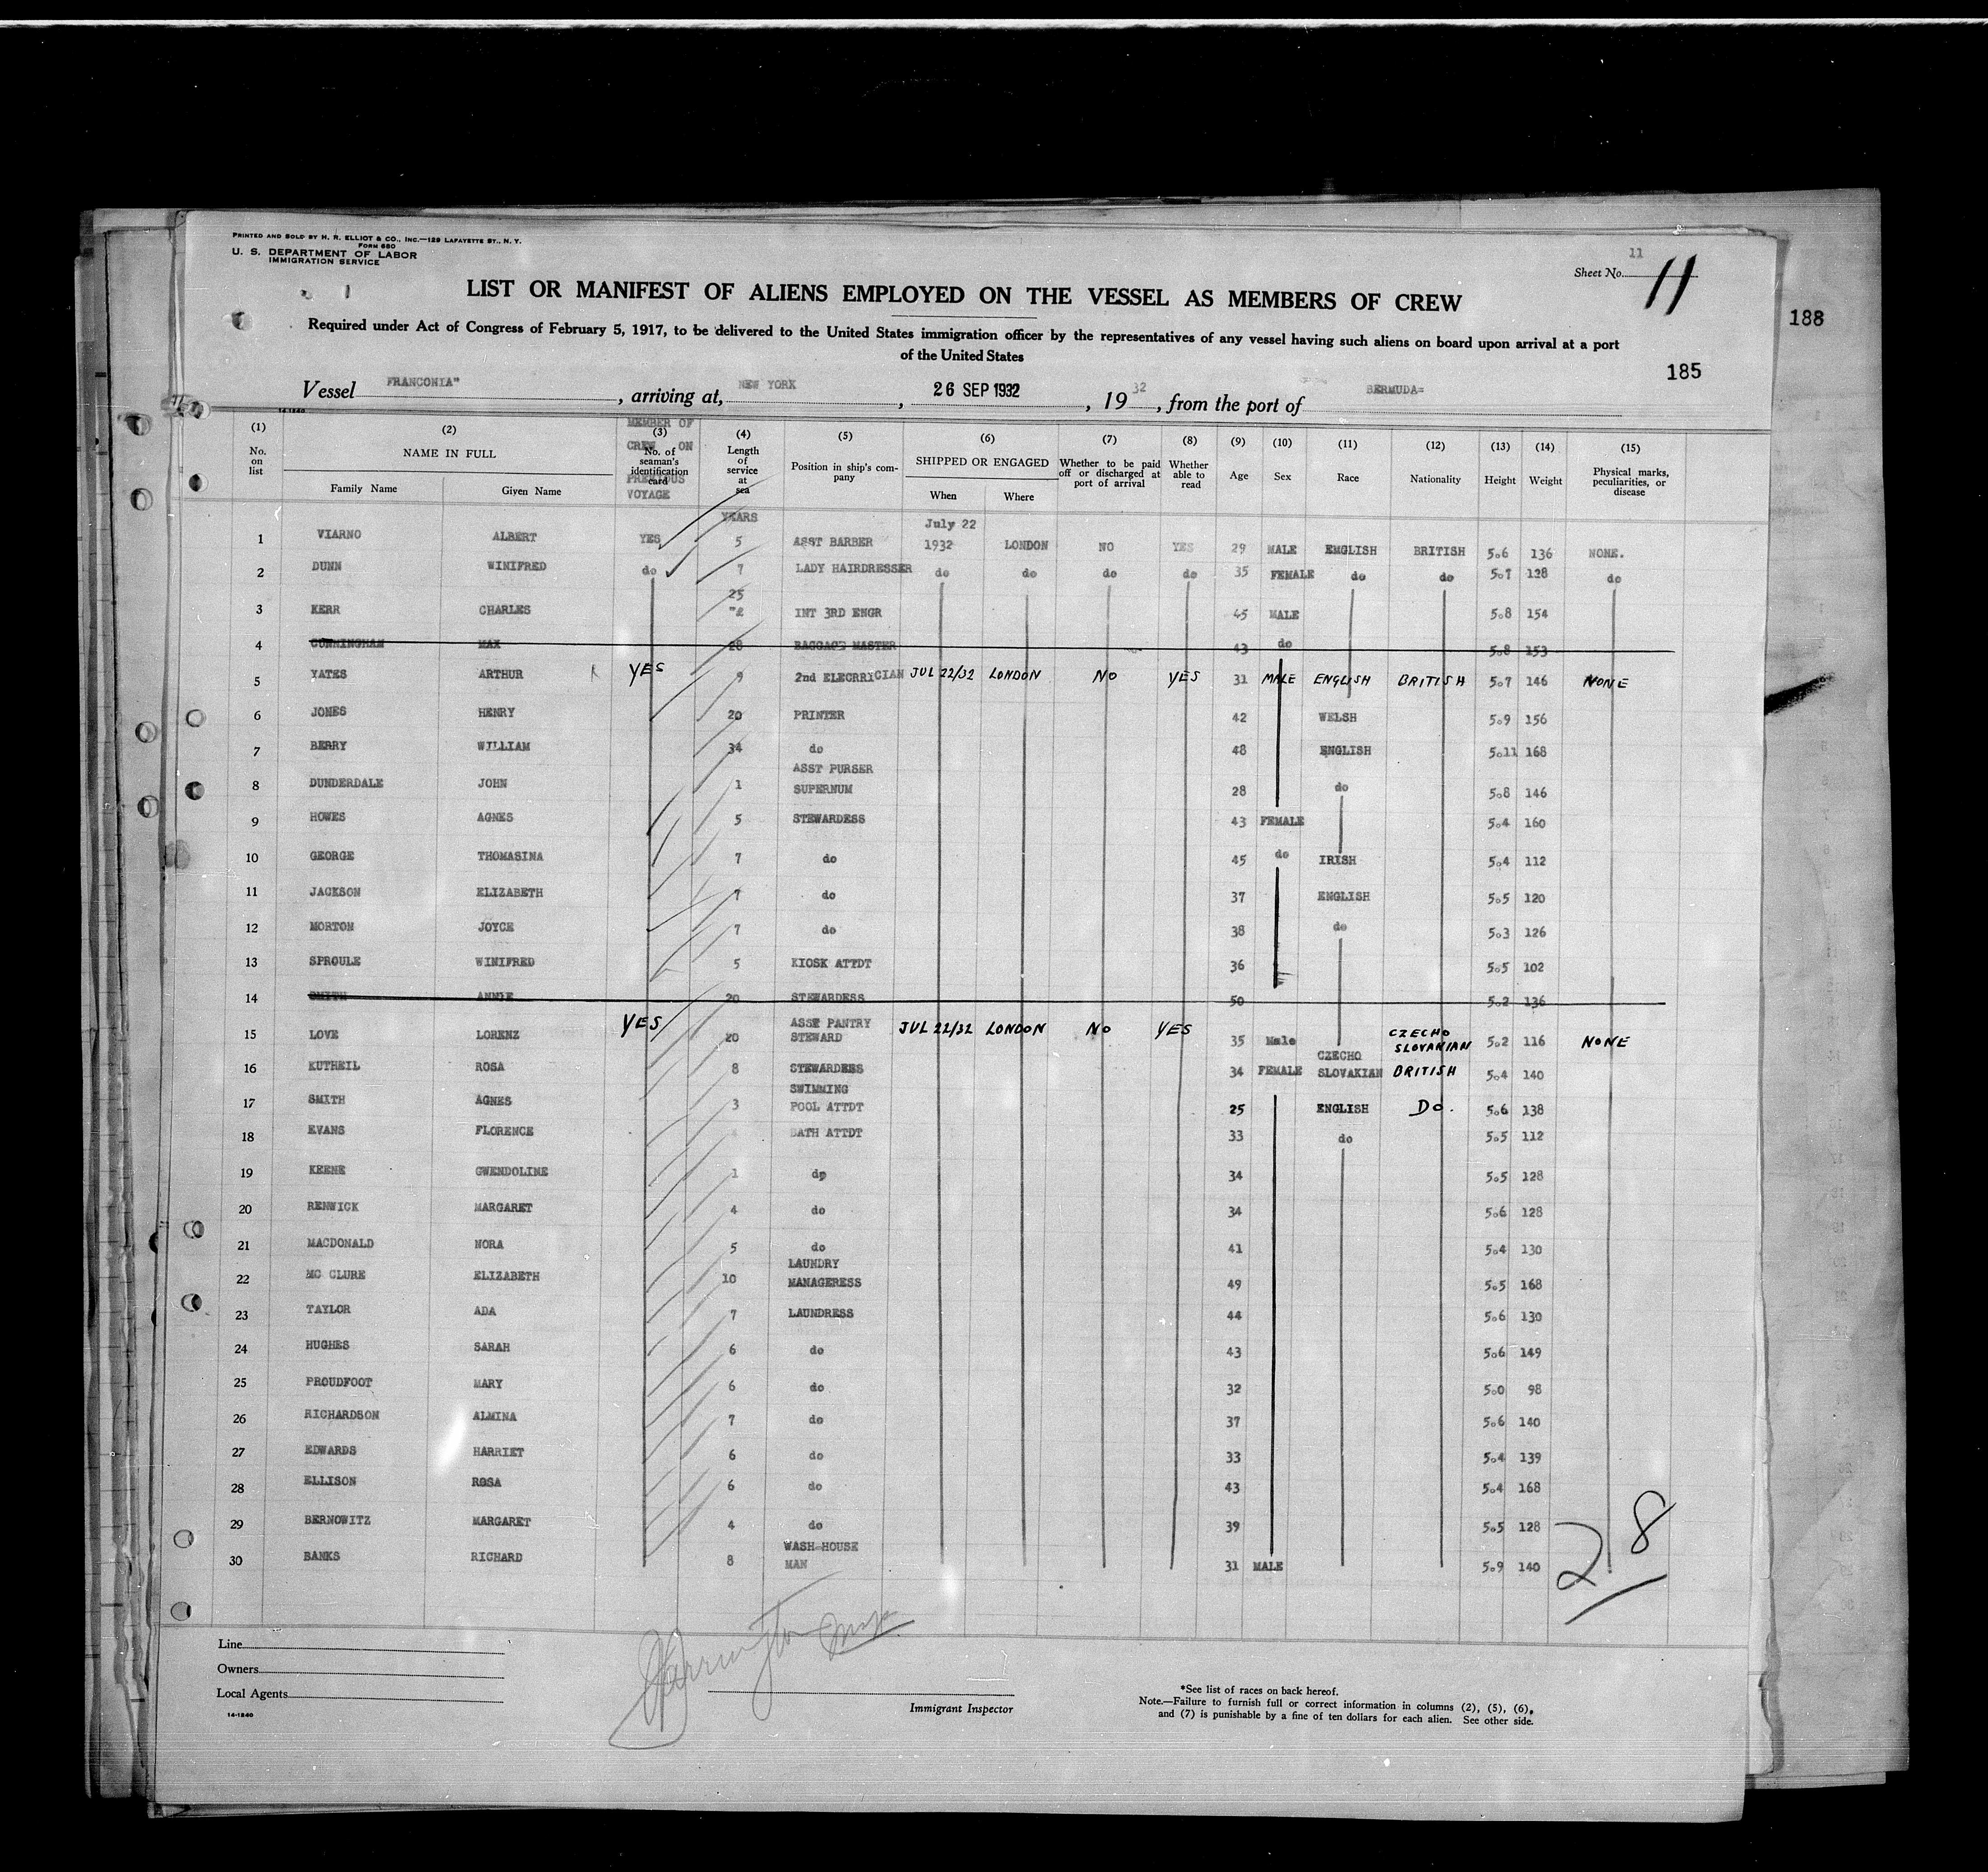 PRINTED AND SOLD BY H. R. ELLIOT & CO., INC.—129 LAFAYETTE ST., N. Y.
FORM 680
U. S. DEPARTMENT OF LABOR
IMMIGRATION SERVICE
11
Sheet No. 11
LIST OR MANIFEST OF ALIENS EMPLOYED ON THE VESSEL AS MEMBERS OF CREW
188
Required under Act of Congress of February 5, 1917, to be delivered to the United States immigration officer by the representatives of any vessel having such aliens on board upon arrival at a port
of the United States
185
Vessel FRANCONIA", arriving at, NEW YORK, 26 SEP 1932, 1932, from the port of BERMUDA=
14-1240
(1) No. on list
(2) NAME IN FULL Family Name Given Name
(3) No. of seaman's identification card
MEMBER OF CREW ON PREVIOUS VOYAGE
(4) Length of service at sea
(5) Position in ship's company
(6) SHIPPED OR ENGAGED When Where
(7) Whether to be paid off or discharged at port of arrival
(8) Whether able to read
(9) Age
(10) Sex
(11) Race
(12) Nationality
(13) Height
(14) Weight
(15) Physical marks, peculiarities, or disease
YEARS July 22
1 VIARNO ALBERT YES 5 ASST BARBER 1932 LONDON NO YES 29 MALE EMGLISH BRITISH 5.6 136 NONE.
2 DUNN WINIFRED do 7 LADY HAIRDRESSER do do do do 35 FEMALE do do 5.7 128 do
25
3 KERR CHARLES INT 3RD ENGR 45 MALE 5.8 154
4 CUNNINGHAM MAX 28 BAGGAGE MASTER 43 do 5.8 153
5 YATES ARTHUR YES 9 2nd ELECRRYCIAN JUL 22/32 LONDON NO YES 31 MALE ENGLISH BRITISH 5.7 146 NONE
6 JONES HENRY 20 PRINTER 42 WELSH 5.9 156
7 BERRY WILLIAM 34 do 48 ENGLISH 5.11 168
ASST PURSER
8 DUNDERDALE JOHN 1 SUPERNUM 28 do 5.8 146
9 HOWES AGNES 5 STEWARDESS 43 FEMALE 5.4 160
10 GEORGE THOMASINA 7 do 45 do IRISH 5.4 112
11 JACKSON ELIZABETH 7 do 37 ENGLISH 5.5 120
12 MORTON JOYCE 7 do 38 do 5.3 126
13 SPROULE WINIFRED 5 KIOSK ATTDT 36 5.5 102
14 SMITH ANNIE 20 STEWARDESS 50 5.2 136
ASST PANTRY
15 LOVE LORENZ YES 20 STEWARD JUL 22/32 LONDON NO YES 35 Male CZECHO SLOVAKIAN 5.2 116 NONE
16 KUTHEIL ROSA 8 STEWARDESS 34 FEMALE CZECHO SLOVAKIAN BRITISH 5.4 140
SWIMMING
17 SMITH AGNES 3 POOL ATTDT 25 ENGLISH DO. 5.6 138
18 EVANS FLORENCE BATH ATTDT 33 do 5.5 112
19 KEENE GWENDOLINE 1 dp 34 5.5 128
20 RENWICK MARGARET 4 do 34 5.6 128
21 MACDONALD NORA 5 do 41 5.4 130
LAUNDRY
22 MC CLURE ELIZABETH 10 MANAGERESS 49 5.5 168
23 TAYLOR ADA 7 LAUNDRESS 44 5.6 130
24 HUGHES SARAH 6 do 43 5.6 149
25 PROUDFOOT MARY 6 do 32 5.0 98
26 RICHARDSON ALMINA 7 do 37 5.6 140
27 EDWARDS HARRIET 6 do 33 5.4 139
28 ELLISON ROSA 6 do 43 5.4 168
29 BERNOWITZ MARGARET 4 do 39 5.5 128
WASH-HOUSE
30 BANKS RICHARD 8 MAN 31 MALE 5.9 140
28
Line
Owners
Local Agents
14-1240
Immigrant Inspector
*See list of races on back hereof.
Note.—Failure to furnish full or correct information in columns (2), (5), (6),
and (7) is punishable by a fine of ten dollars for each alien. See other side.